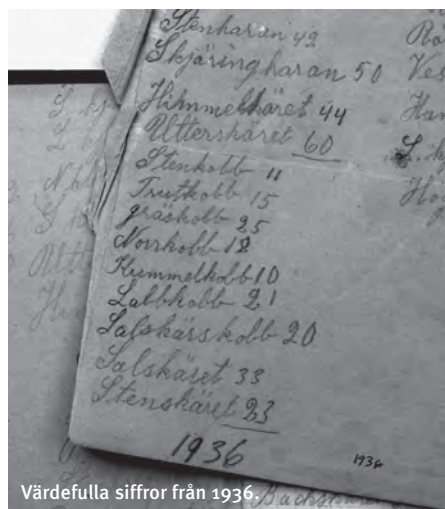 Stenharan 42
Skjäringharan 50
Himmelskäret 44
Utterskäret 60
Stenkobb 11
Trutkobb 15
gråskobb 25
Norrkobb 18
Kummelkobb 10
Labbkobb 21
Salskärskobb 20
Salskäret 33
Stenskäret 23
1936
1936
Värdefulla siffror från 1936.